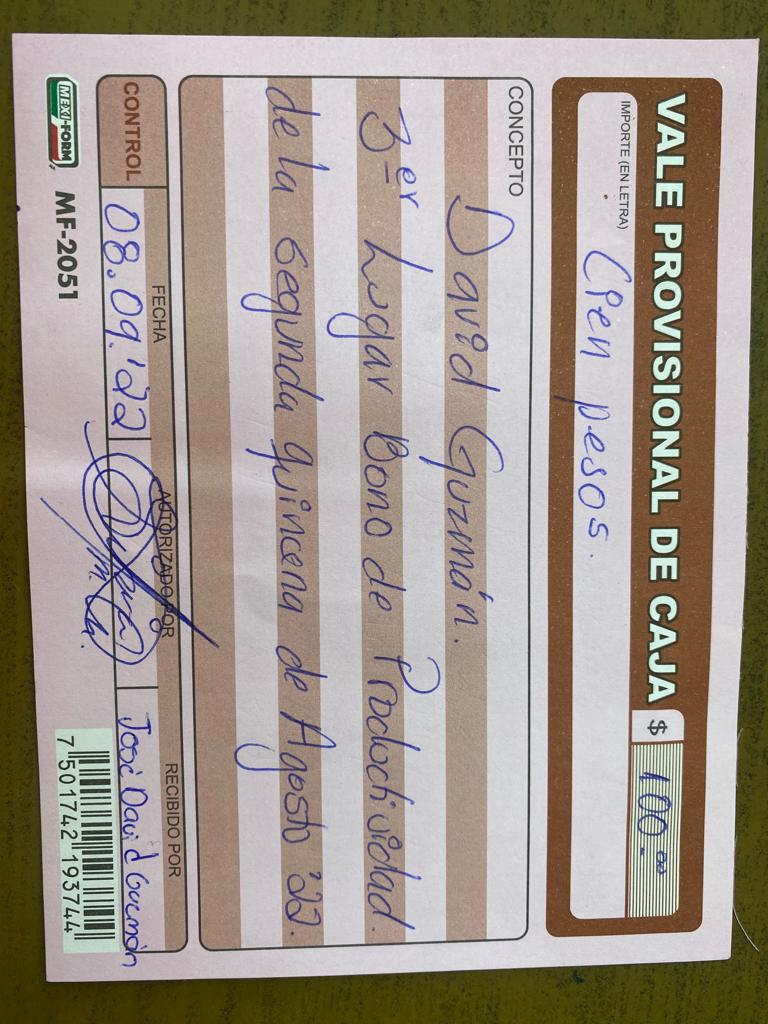 VALE PROVISIONAL DE CAJA $ 100.00
IMPORTE (EN LETRA)
Cien pesos.
CONCEPTO
David Guzmán.
3er Lugar Bono de Productividad.
de la segunda quincena de Agosto '22.
CONTROL
FECHA
08.09.'22
AUTORIZADO POR
RECIBIDO POR
José David Guzmán
MEXI-FORM
MF-2051
7 501742 193744